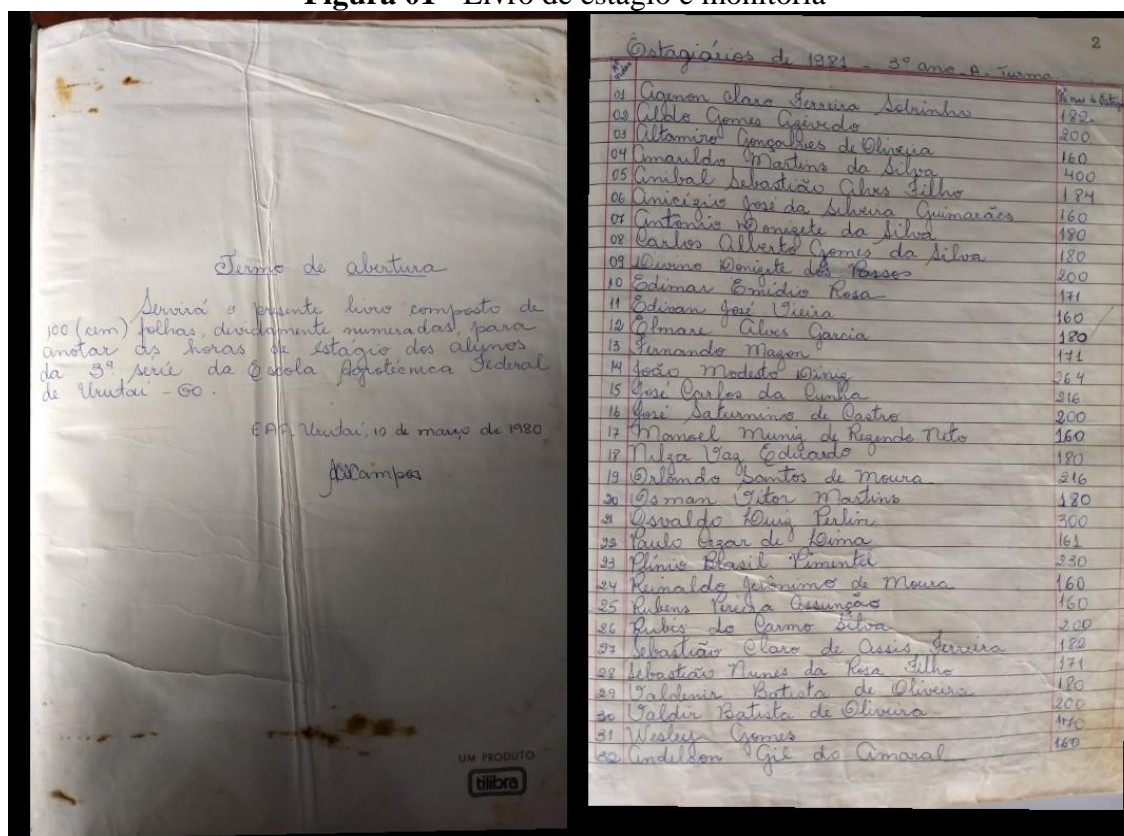 Figura 01 - Livro de estágio e monitoria
Termo de abertura
Servirá o presente livro composto de
100 (cem) folhas, devidamente numeradas, para
anotar as horas de estágio dos alunos
da 3ª série da Escola Agrotécnica Federal
de Urutaí - GO.
EAF, Urutaí, 10 de março de 1980
UM PRODUTO
tilibra
2
Estagiários de 1981 - 3º ano A. Turma
01 Agenon Claro Ferreira Sobrinho 182
02 Aildo Gomes Azevedo 200
03 Altamiro Gonçalves de Oliveira 160
04 Amarildo Martins da Silva 400
05 Anibal Sebastião Alves Filho 184
06 Anicézio José da Silveira Guimarães 160
07 Antônio Donizete da Silva 180
08 Carlos Alberto Gomes da Silva 180
09 Divino Donizete dos Passos 200
10 Edimar Emídio Rosa 171
11 Edivan José Vieira 160
12 Elmare Alves Garcia 180
13 Fernando Mazon 171
14 João Modesto Diniz 264
15 José Carlos da Cunha 216
16 José Saturnino de Castro 200
17 Manoel Muniz de Rezende Neto 160
18 Nilza Vaz Eduardo 180
19 Orlando Santos de Moura 216
20 Osman Vitor Martins 180
21 Osvaldo Luiz Perlin 300
22 Paulo Cezar de Lima 161
23 Plínio Brasil Pimentel 230
24 Reinaldo Jerônimo de Moura 160
25 Rubens Pereira Assunção 160
26 Rubis do Carmo Silva 200
27 Sebastião Claro de Assis Ferreira 182
28 Sebastião Nunes da Rosa Filho 171
29 Valdenir Batista de Oliveira 180
30 Valdir Batista de Oliveira 200
31 Wesley Gomes
32 Andelson Gil do Amaral 160